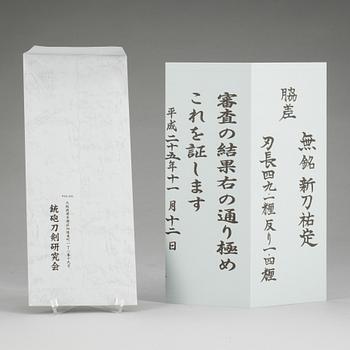 脇差
無銘 新刀祐定
刃長四九・一糎反り一・四糎
審査の結果右の通り極め
これを証します
平成二十五年十一月十二日
銃砲刀剣研究会